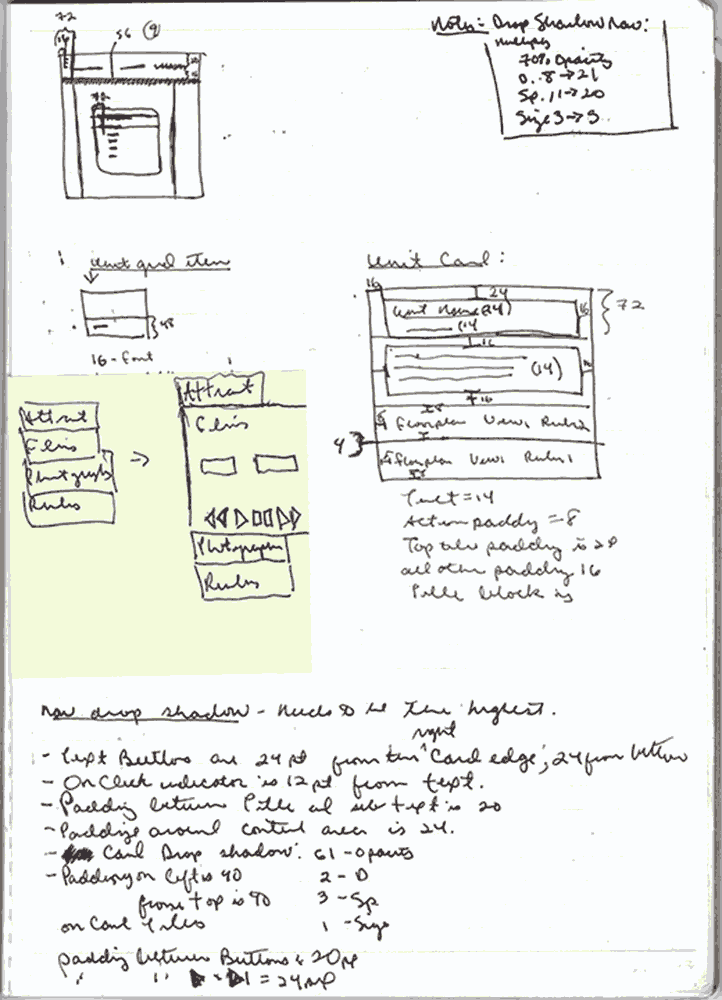 72
16
56
9
Notes: Drop Shadow Nav:
multiply
70% Opacity
D. 8 → 21
Sp. 11 → 20
Size 3 → 5
72
Unit grid item
48
16 - font
Unit Card:
16
24
72
Unit Name (24)
16
(14
16
(14)
16
16
8
Floorplan View1 Rules2
4
Floorplan View1 Rules1
8
Text = 14
Action padding = 8
Top title padding is 24
all other padding 16
Title block is
Attract
Films
Photographs
Rules
Attract
Films
Photographs
Rules
Nav drop shadow - Needs to be the highest.
right
- Text Buttons are 24 pt from the Card edge, 24 from bottom
- On Click indicator is 12 pt from text.
- Padding between Title and sub text is 20
- Padding around content area is 24.
- Card Drop shadow: 61 - Opacity
- Padding on left is 40 2 - D
from top is 40 3 - Sp
on Card Titles 1 - Size
padding between Buttons is 20
" " = 24